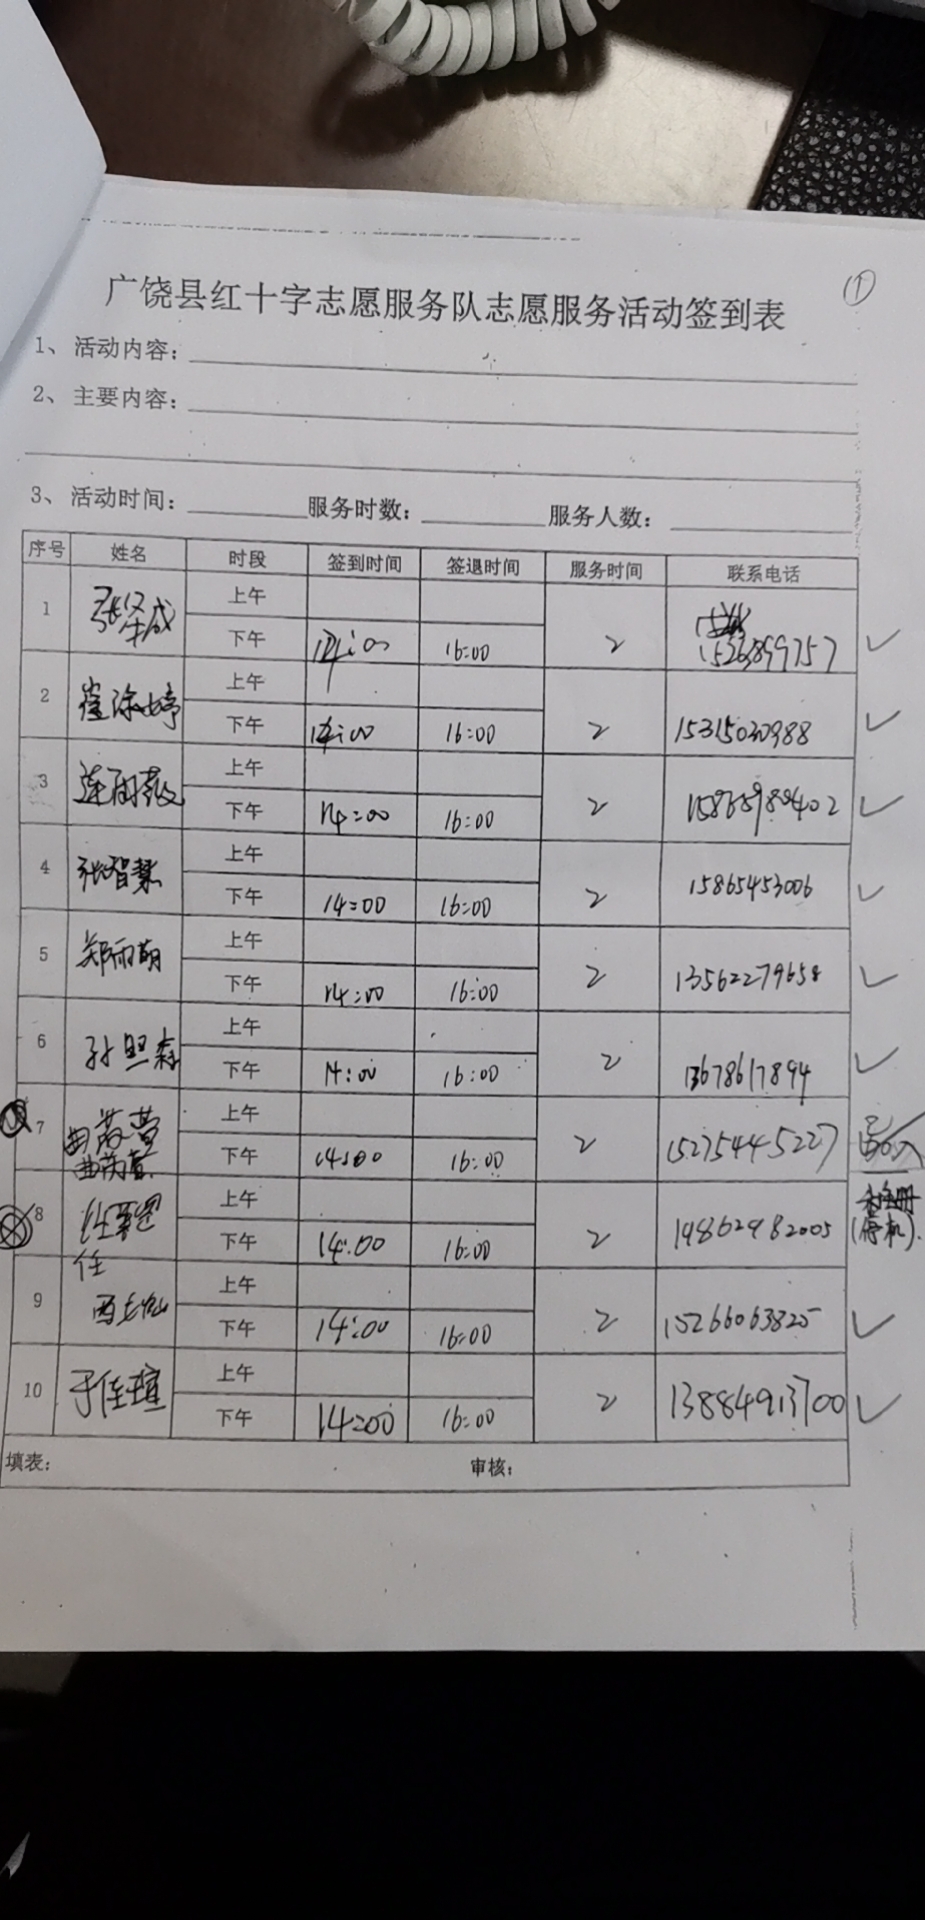 ①
广饶县红十字志愿服务队志愿服务活动签到表
1、活动内容：
2、主要内容：
3、活动时间： 服务时数： 服务人数：
序号 姓名 时段 签到时间 签退时间 服务时间 联系电话
1 张泽成 上午
下午 14:00 16:00 2
2 崔涂婷 上午
下午 14:00 16:00 2 15315030988 ✓
3 上午
下午 14:00 16:00 2 ✓
4 张智慧 上午
下午 14:00 16:00 2 15865453006 ✓
5 郑雨萌 上午
下午 14:00 16:00 2 13562279658 ✓
6 孙照森 上午
下午 14:00 16:00 2 13678617894 ✓
7 上午
下午 14:00 16:00 2 15275445227
8 上午
下午 14:00 16:00 2 19862982005 (停机)
任
9 上午
下午 14:00 16:00 2 15266063825 ✓
10 于佳瑄 上午
下午 14:00 16:00 2 13884913700 ✓
填表： 审核：